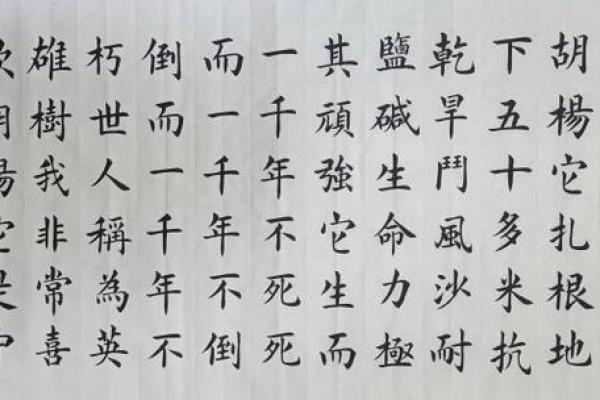 胡楊它扎根地
下五十多米抗
乾旱鬥風沙耐
鹽碱生命力極
其頑強它生而
一千年不死死
而一千年不倒
倒而一千年不
朽世人稱為英
雄樹我非常喜